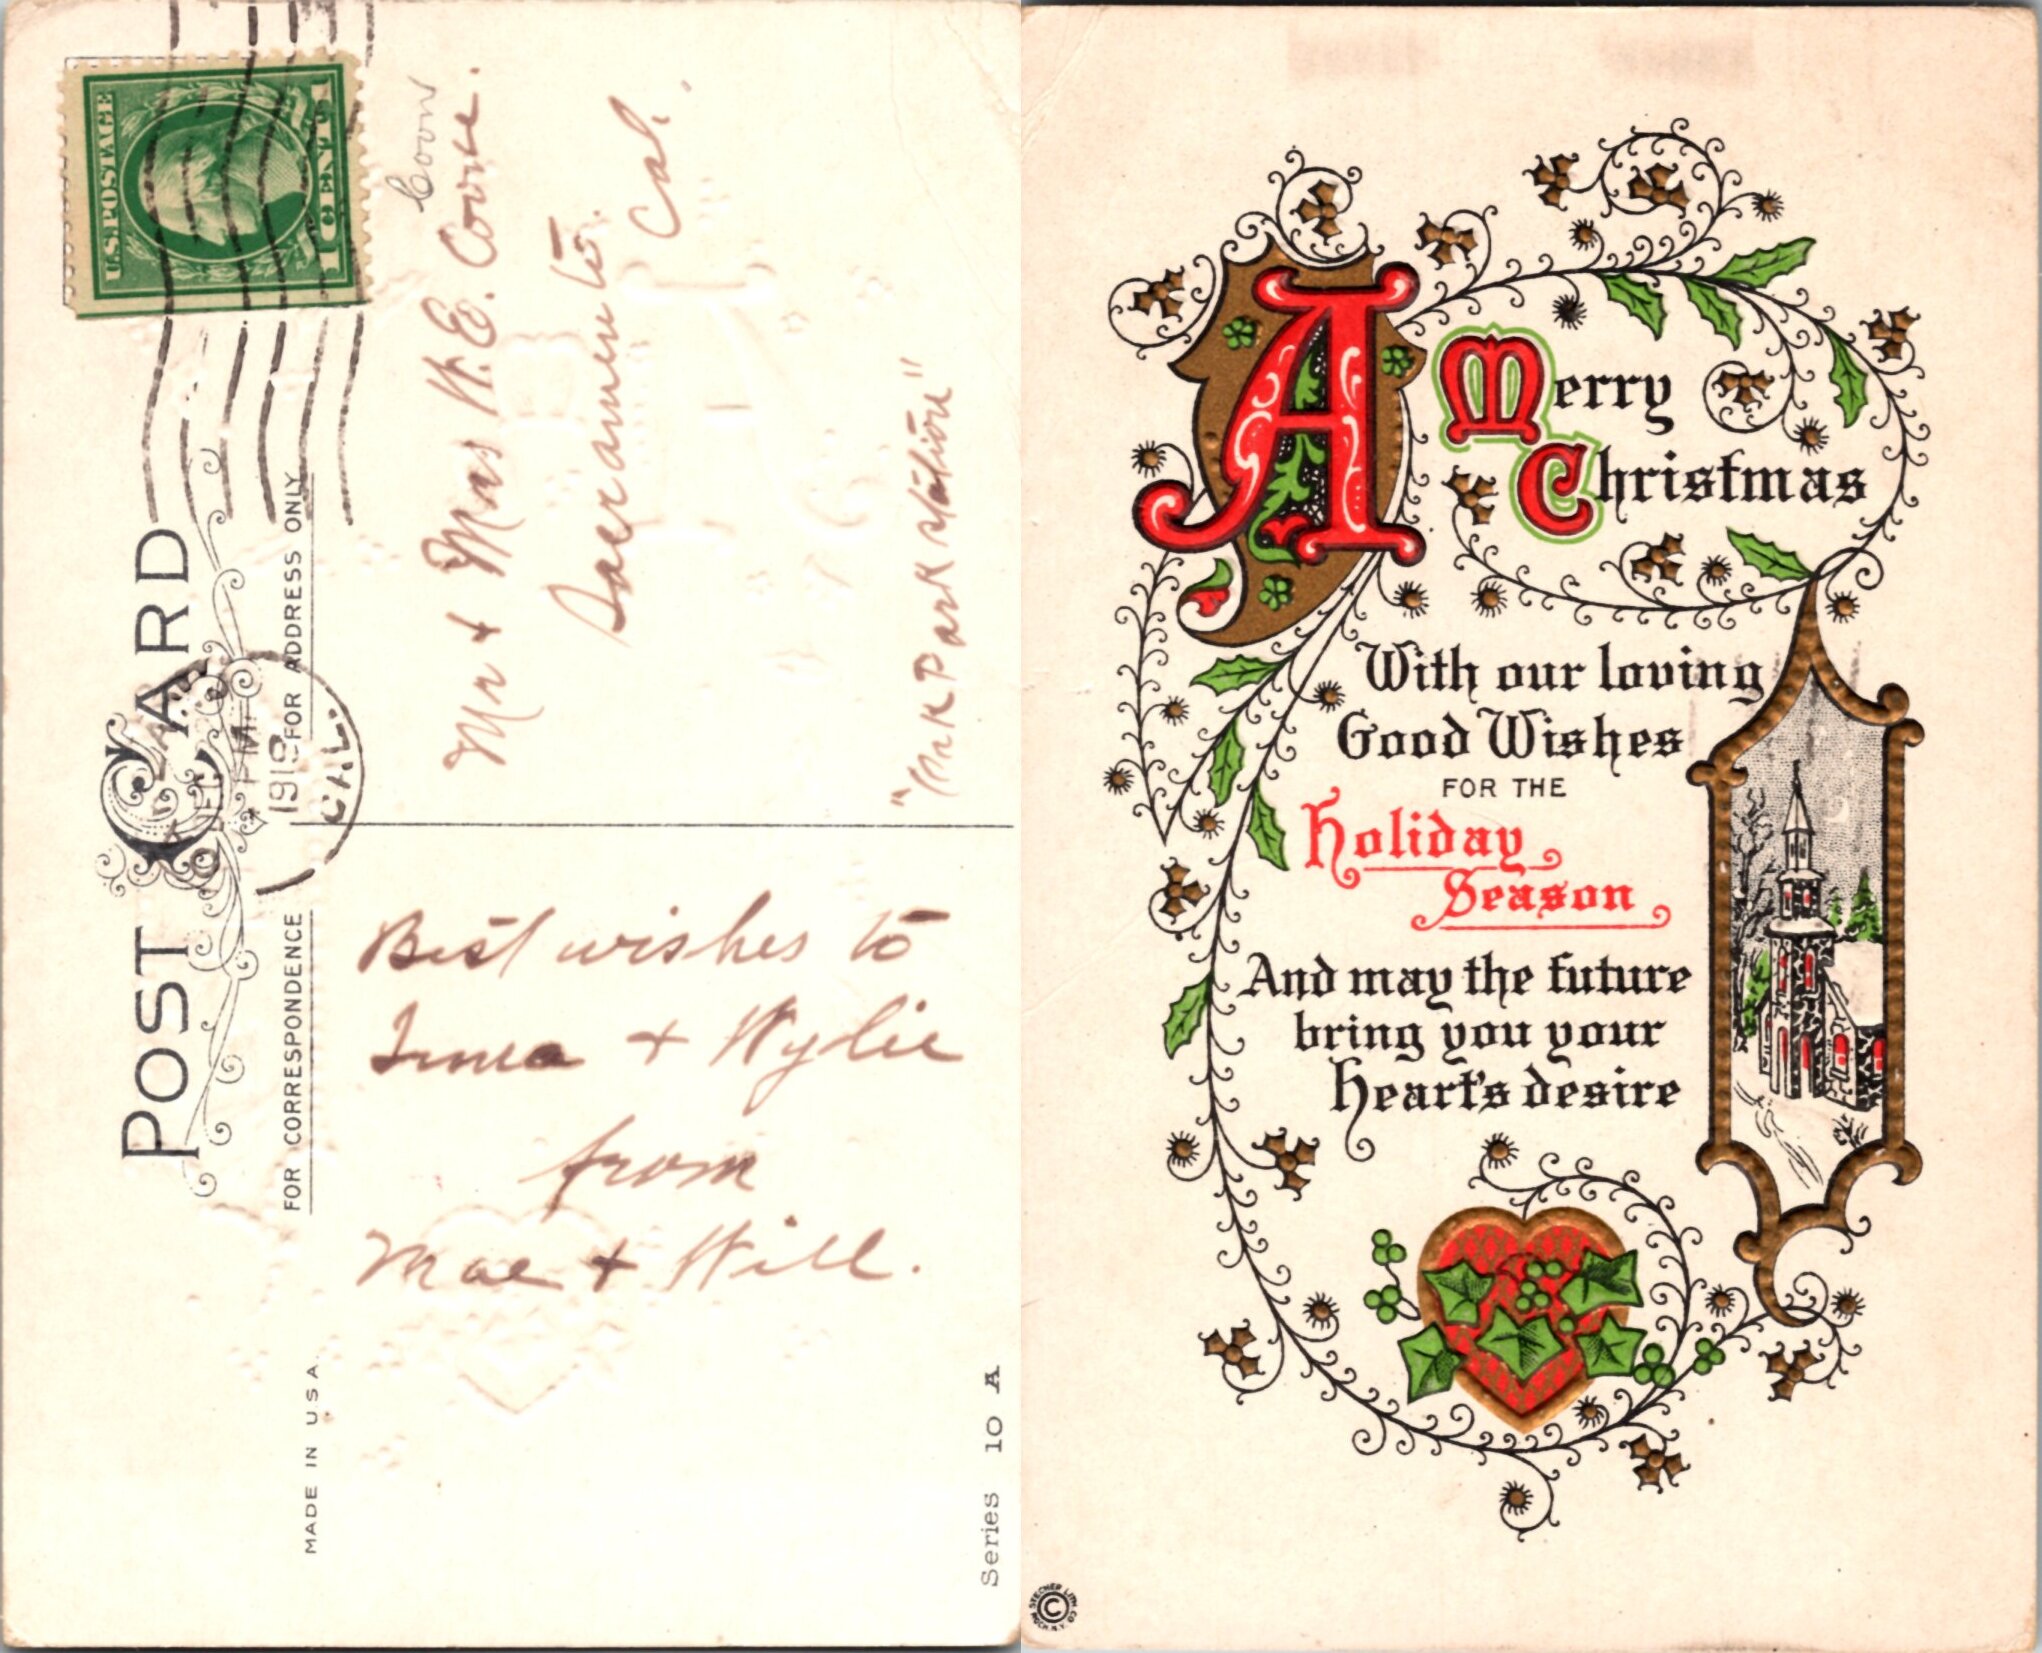 POST CARD
FOR CORRESPONDENCE
FOR ADDRESS ONLY
U.S. POSTAGE
1 CENT 1
1 PM
1919
CAL.
Coon
Mr & Mrs W. E. Coone.
Sacramento.
Cal.
"Oak Park Station"
Best wishes to
Irma & Wylie
from
Mae & Will.
MADE IN U.S.A.
Series 10 A
A Merry
Christmas
With our loving
Good Wishes
FOR THE
Holiday
Season
And may the future
bring you your
Heart's desire
STECHER LITH CO
ROCH. N.Y.
©